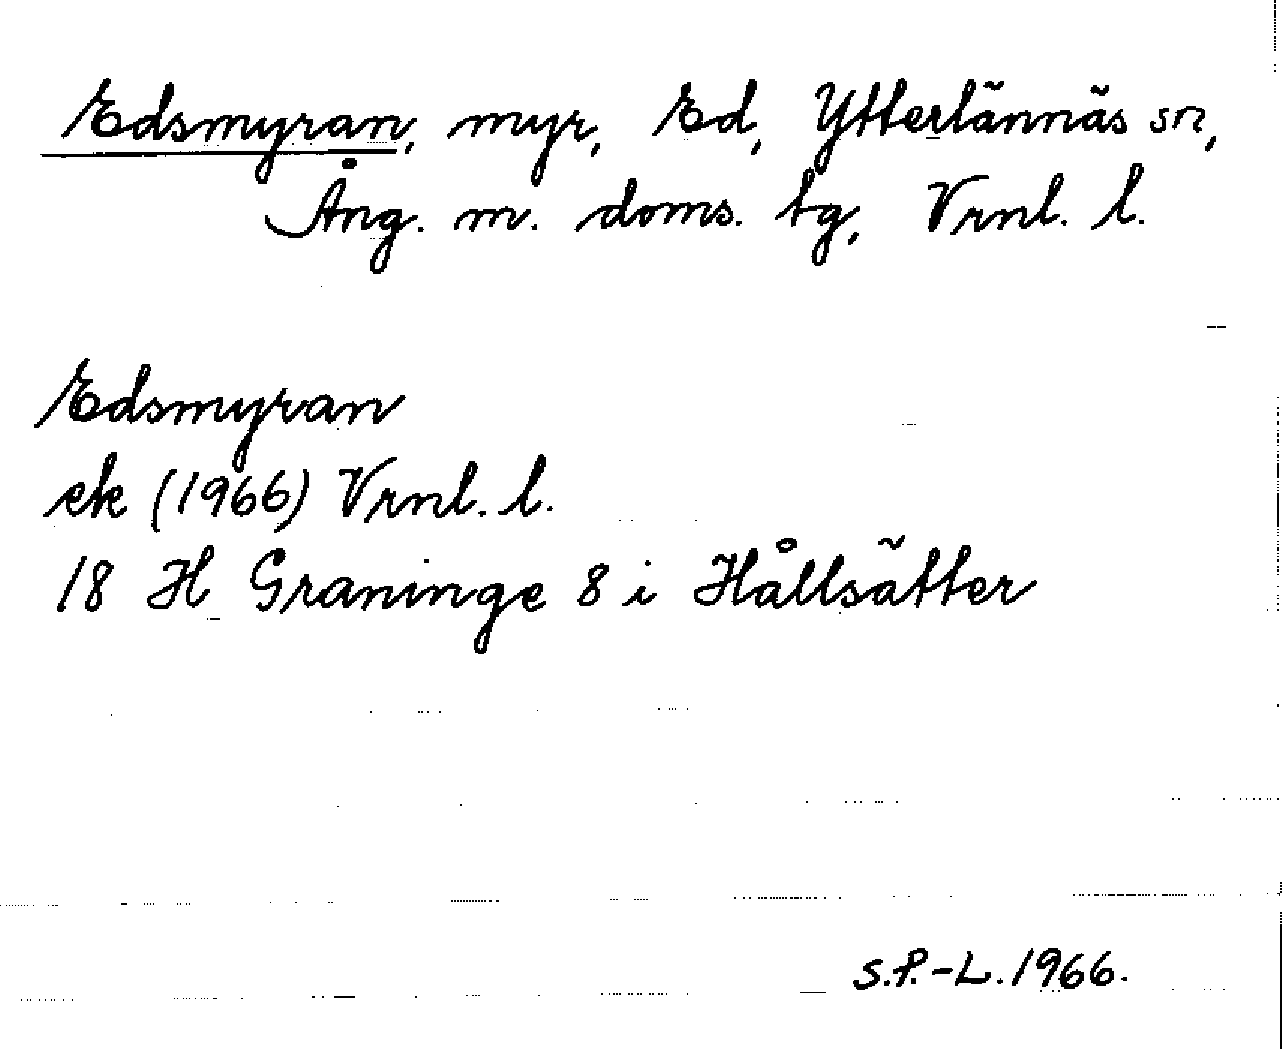 Edsmyran, myr, Ed, Ytterlännäs sn,
Ång. m. doms. tg, Vrnl. l.
Edsmyran
ek (1966) Vrnl. l.
18 H Graninge 8 i Hållsätter
S.P.-L. 1966.